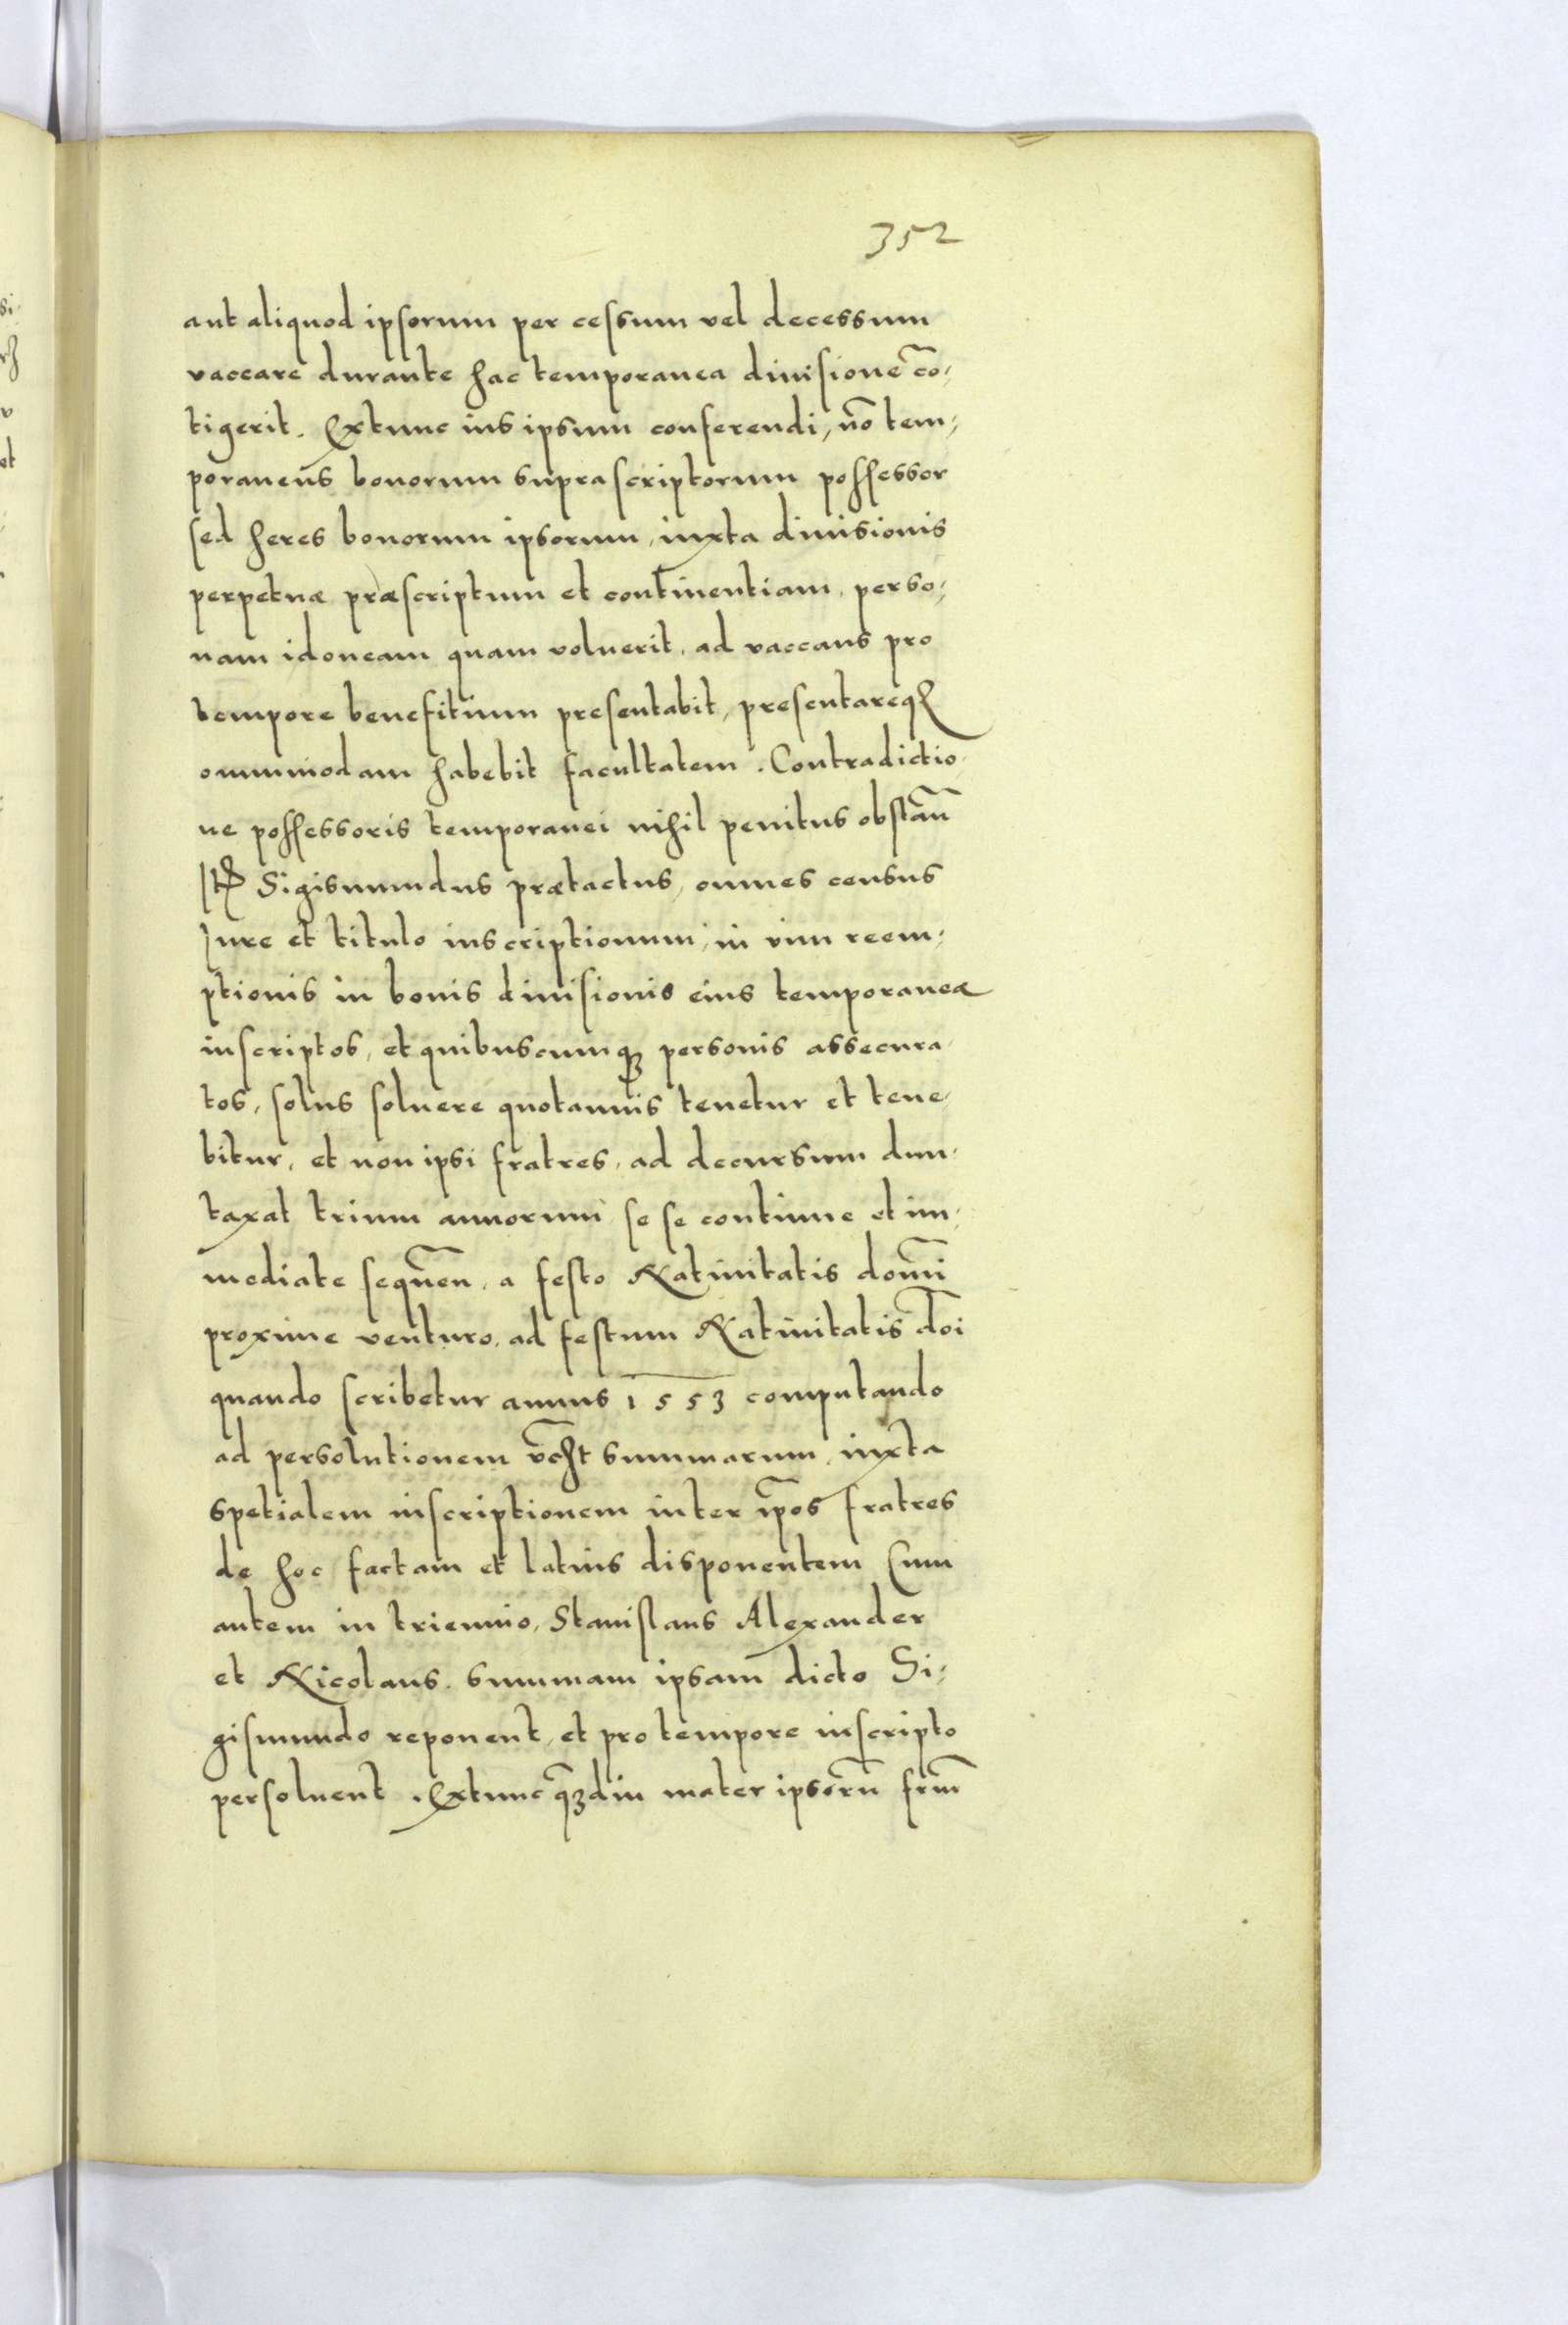 352
aut aliquod ipsorum per cessum vel decessum
vaccare durante hac temporanea divisione cō-
tigerit. Extunc ius ipsum conferendi, nō tem-
poraneus bonorum suprascriptorum possessor
sed heres bonorum ipsorum, iuxta divisionis
perpetuæ præscriptum et continentiam, perso-
nam idoneam quam voluerit, ad vaccans pro
tempore benefitium presentabit, presentareq
omnimodam habebit facultatem. Contradictio
ne possessoris temporanei nihil penitus obstan̄
Sigismundus prætactus, omnes census
Jure et titulo inscriptionum, in vim reem-
ptionis in bonis divisionis eius temporaneæ
inscriptos, et quibuscumqꝫ personis assecura
tos, solus soluere quotannis tenetur et tene-
bitur, et non ipsi fratres, ad decursum dun-
taxat trium annorum se se continue et im-
mediate sequen̄, a festo Nativitatis domī
proxime venturo, ad festum Nativitatis doī
quando scribetur annus 1553 computando
ad persolutionem summarum, iuxta
spetialem inscriptionem inter ip̄os fratres
de hoc factam et latius disponentem Cum
autem in triennio, Stanislaus Alexander
et Nicolaus summam ipsam dicto Si-
gismundo reponent, et pro tempore inscripto
persoluent. Extunc qꝫdiu mater ipsorū frm̄